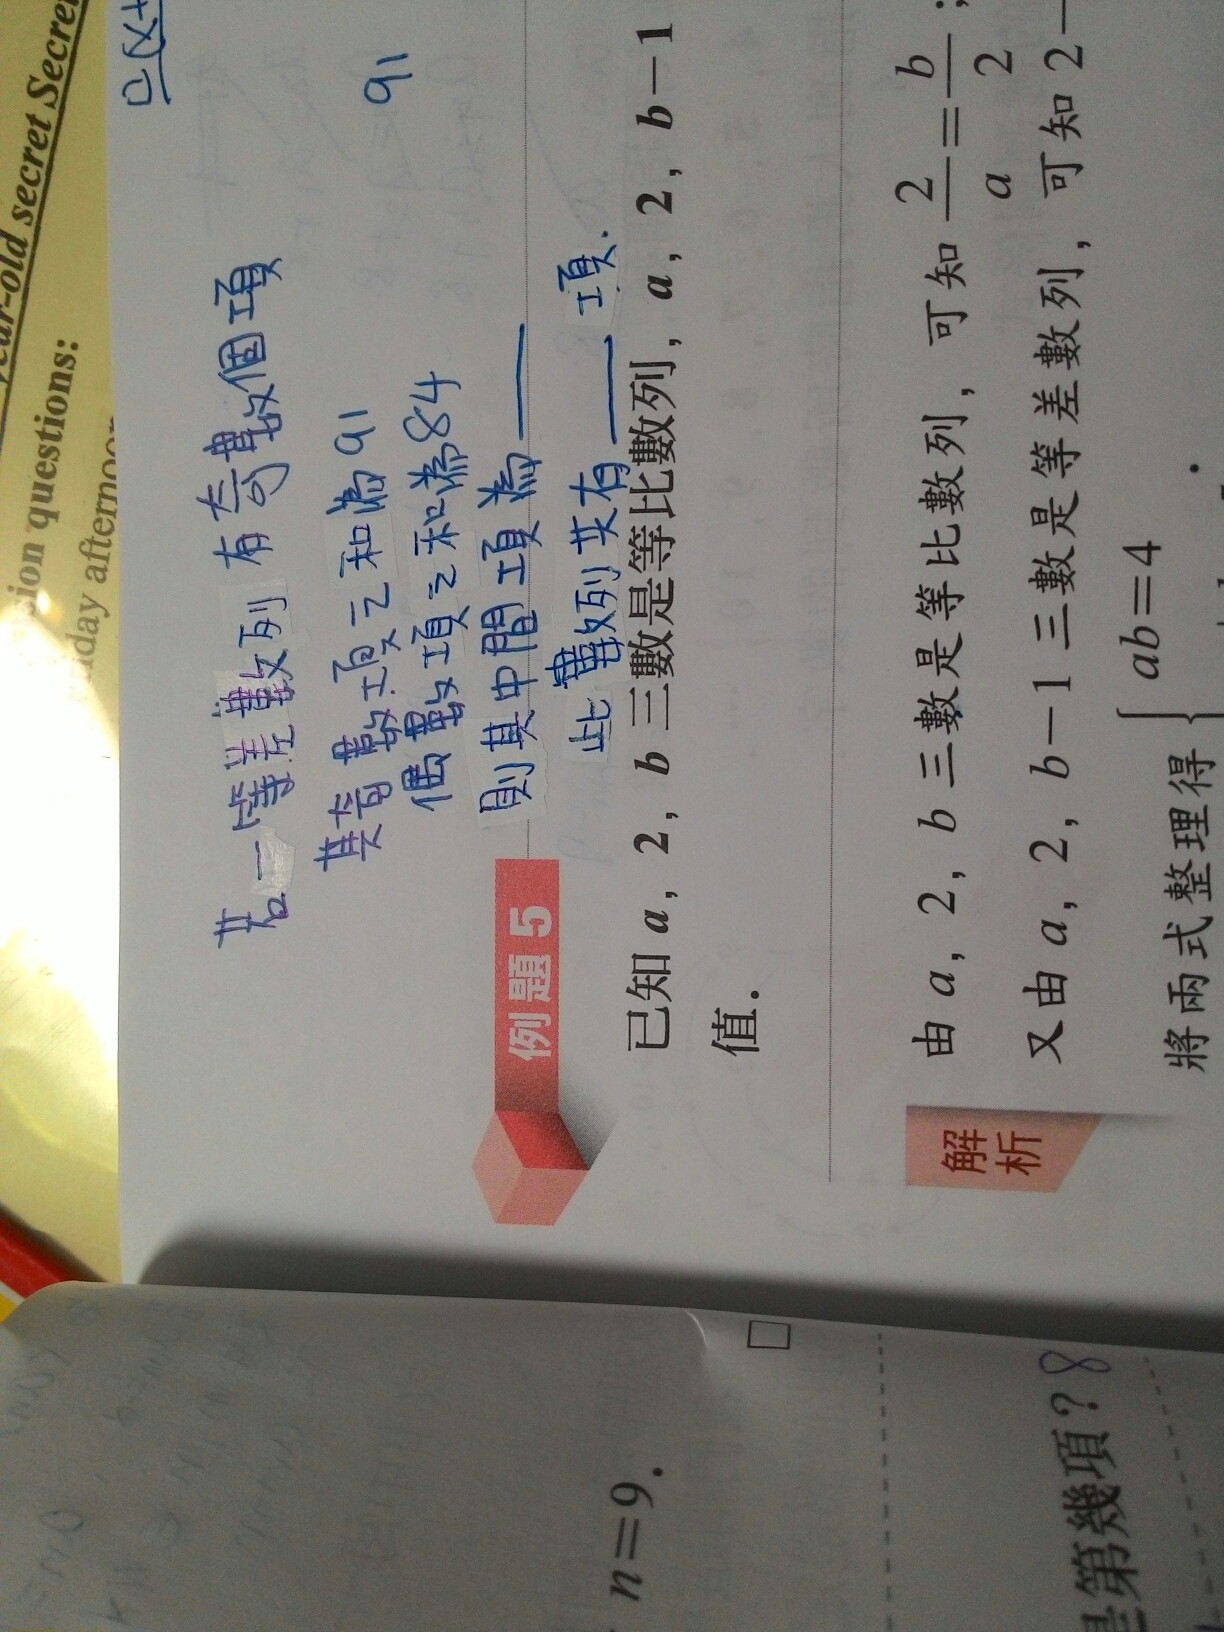 year-old secret Secre
ion questions:
day afternoo
若一等差數列有奇數個項
其奇數項之和為91
91
偶數項之和為84
則其中間項為____
此數列共有____項.
例題 5
已知 a, 2, b 三數是等比數列, a, 2, b−1
值.
解析
由 a, 2, b 三數是等比數列, 可知 2/a = b/2 ;
又由 a, 2, b−1 三數是等差數列, 可知 2−
將兩式整理得 { ab=4
.
n=9.
□
是第幾項? 8